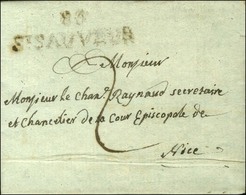 86
ST SAUVEUR
Monsieur
Monsieur le Chan.e Raynaud secretaire
et Chancelier de la Cour Episcopale de
Nice
2